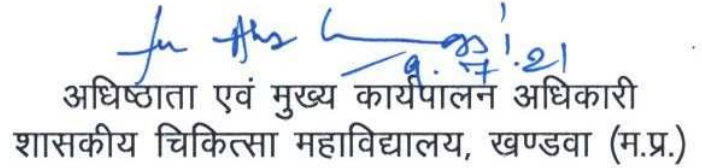 9.7.21
अधिष्ठाता एवं मुख्य कार्यपालन अधिकारी
शासकीय चिकित्सा महाविद्यालय, खण्डवा (म.प्र.)